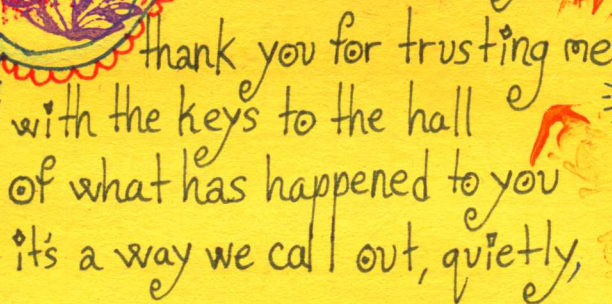 thank you for trusting me
with the keys to the hall
of what has happened to you
it's a way we call out, quietly,